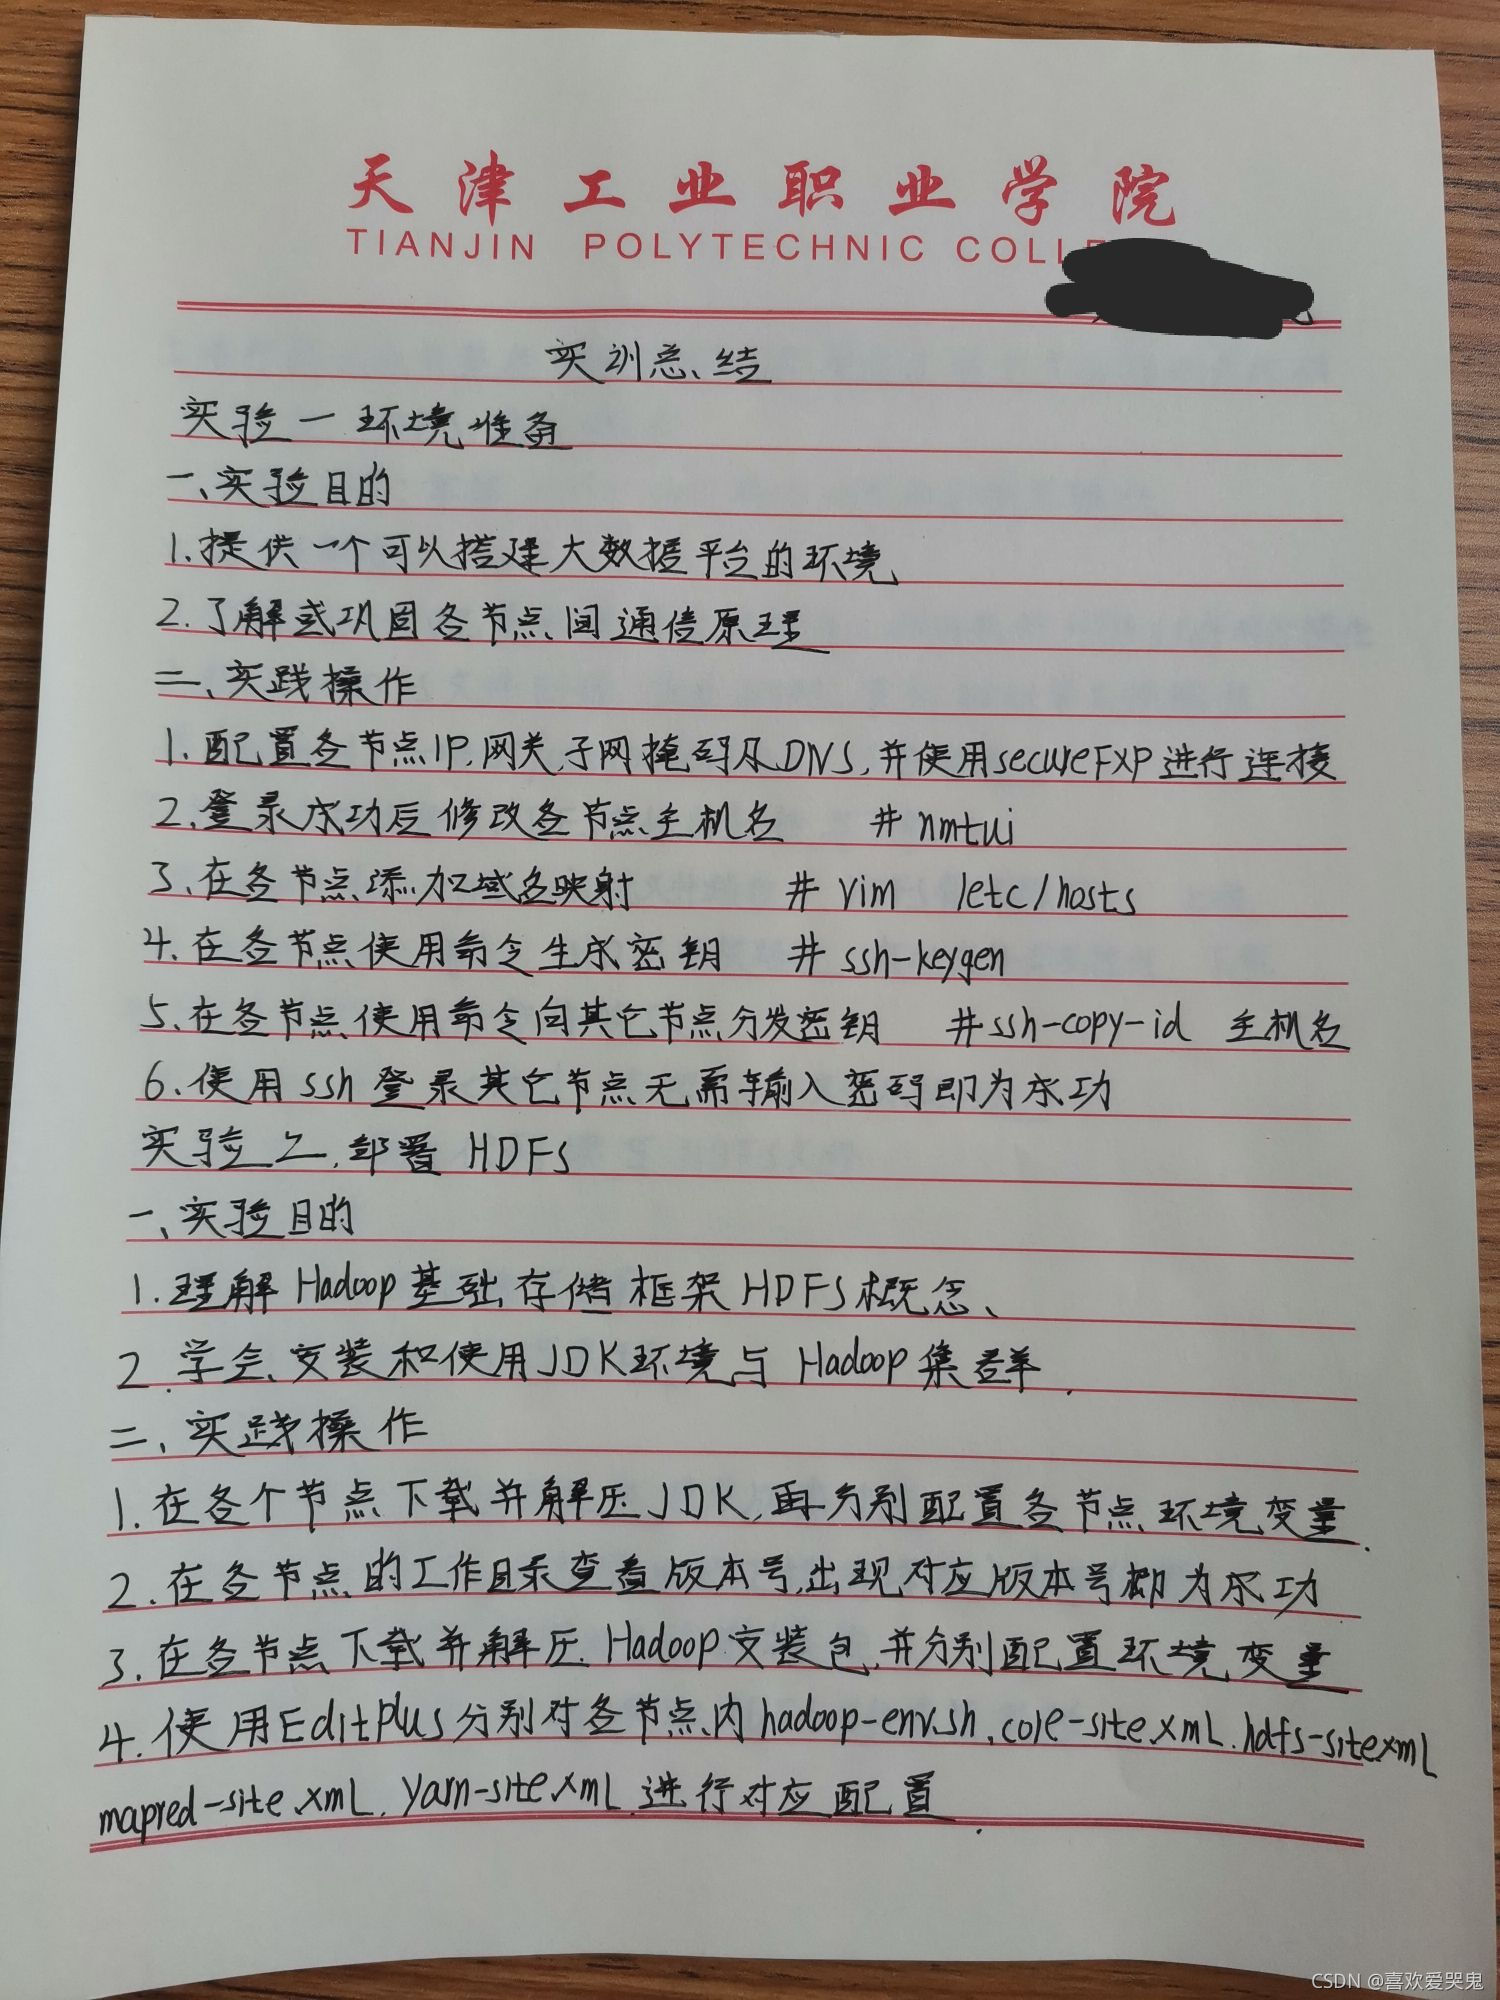 天津工业职业学院
TIANJIN POLYTECHNIC COLLE
实训总结
实验一 环境准备
一、实验目的
1.提供一个可以搭建大数据平台的环境
2.了解或巩固各节点间通信原理
二、实践操作
1.配置各节点IP,网关,子网掩码及DNS,并使用secureFXP进行连接
2.登录成功后修改各节点主机名 # nmtui
3.在各节点添加域名映射 # vim /etc/hosts
4.在各节点使用命令生成密钥 # ssh-keygen
5.在各节点使用命令向其它节点分发密钥 #ssh-copy-id 主机名
6.使用ssh登录其它节点无需输入密码即为成功
实验二.部署HDFS
一、实验目的
1.理解Hadoop基础存储框架HDFS概念、
2.学会安装和使用JDK环境与Hadoop集群.
二、实践操作
1.在各个节点下载并解压JDK,再分别配置各节点环境变量.
2.在各节点的工作目录查看版本号,出现对应版本号即为成功
3.在各节点下载并解压Hadoop安装包,并分别配置环境变量
4.使用EditPlus分别对各节点内hadoop-env.sh,core-site.xml.hdfs-site.xml
mapred-site.xml,yarn-site.xml进行对应配置.
CSDN @喜欢爱哭鬼